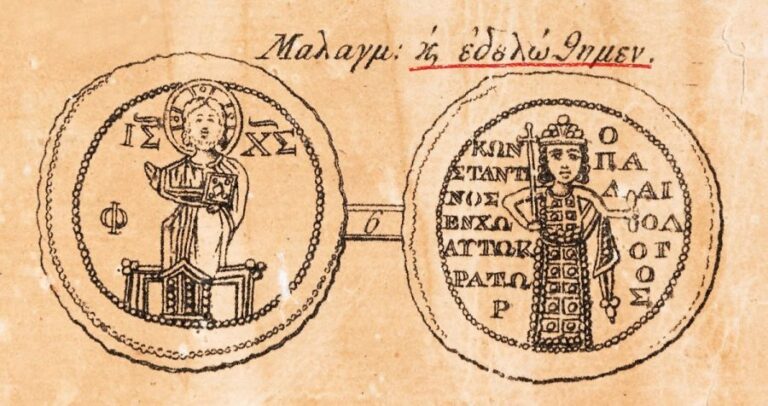 Μαλαγμ: κ, εδελώθημεν.
ΙΣ ΧΣ
Φ
6
ΚΩΝ
ΣΤΑΝΤΙ
ΝΟΣ
ΕΝΧΩ
ΑΥΤΟΚ
ΡΑΤΩ
Ρ
Ο
ΠΑ
ΛΑΙ
ΟΛ
ΟΓ
ΟΣ